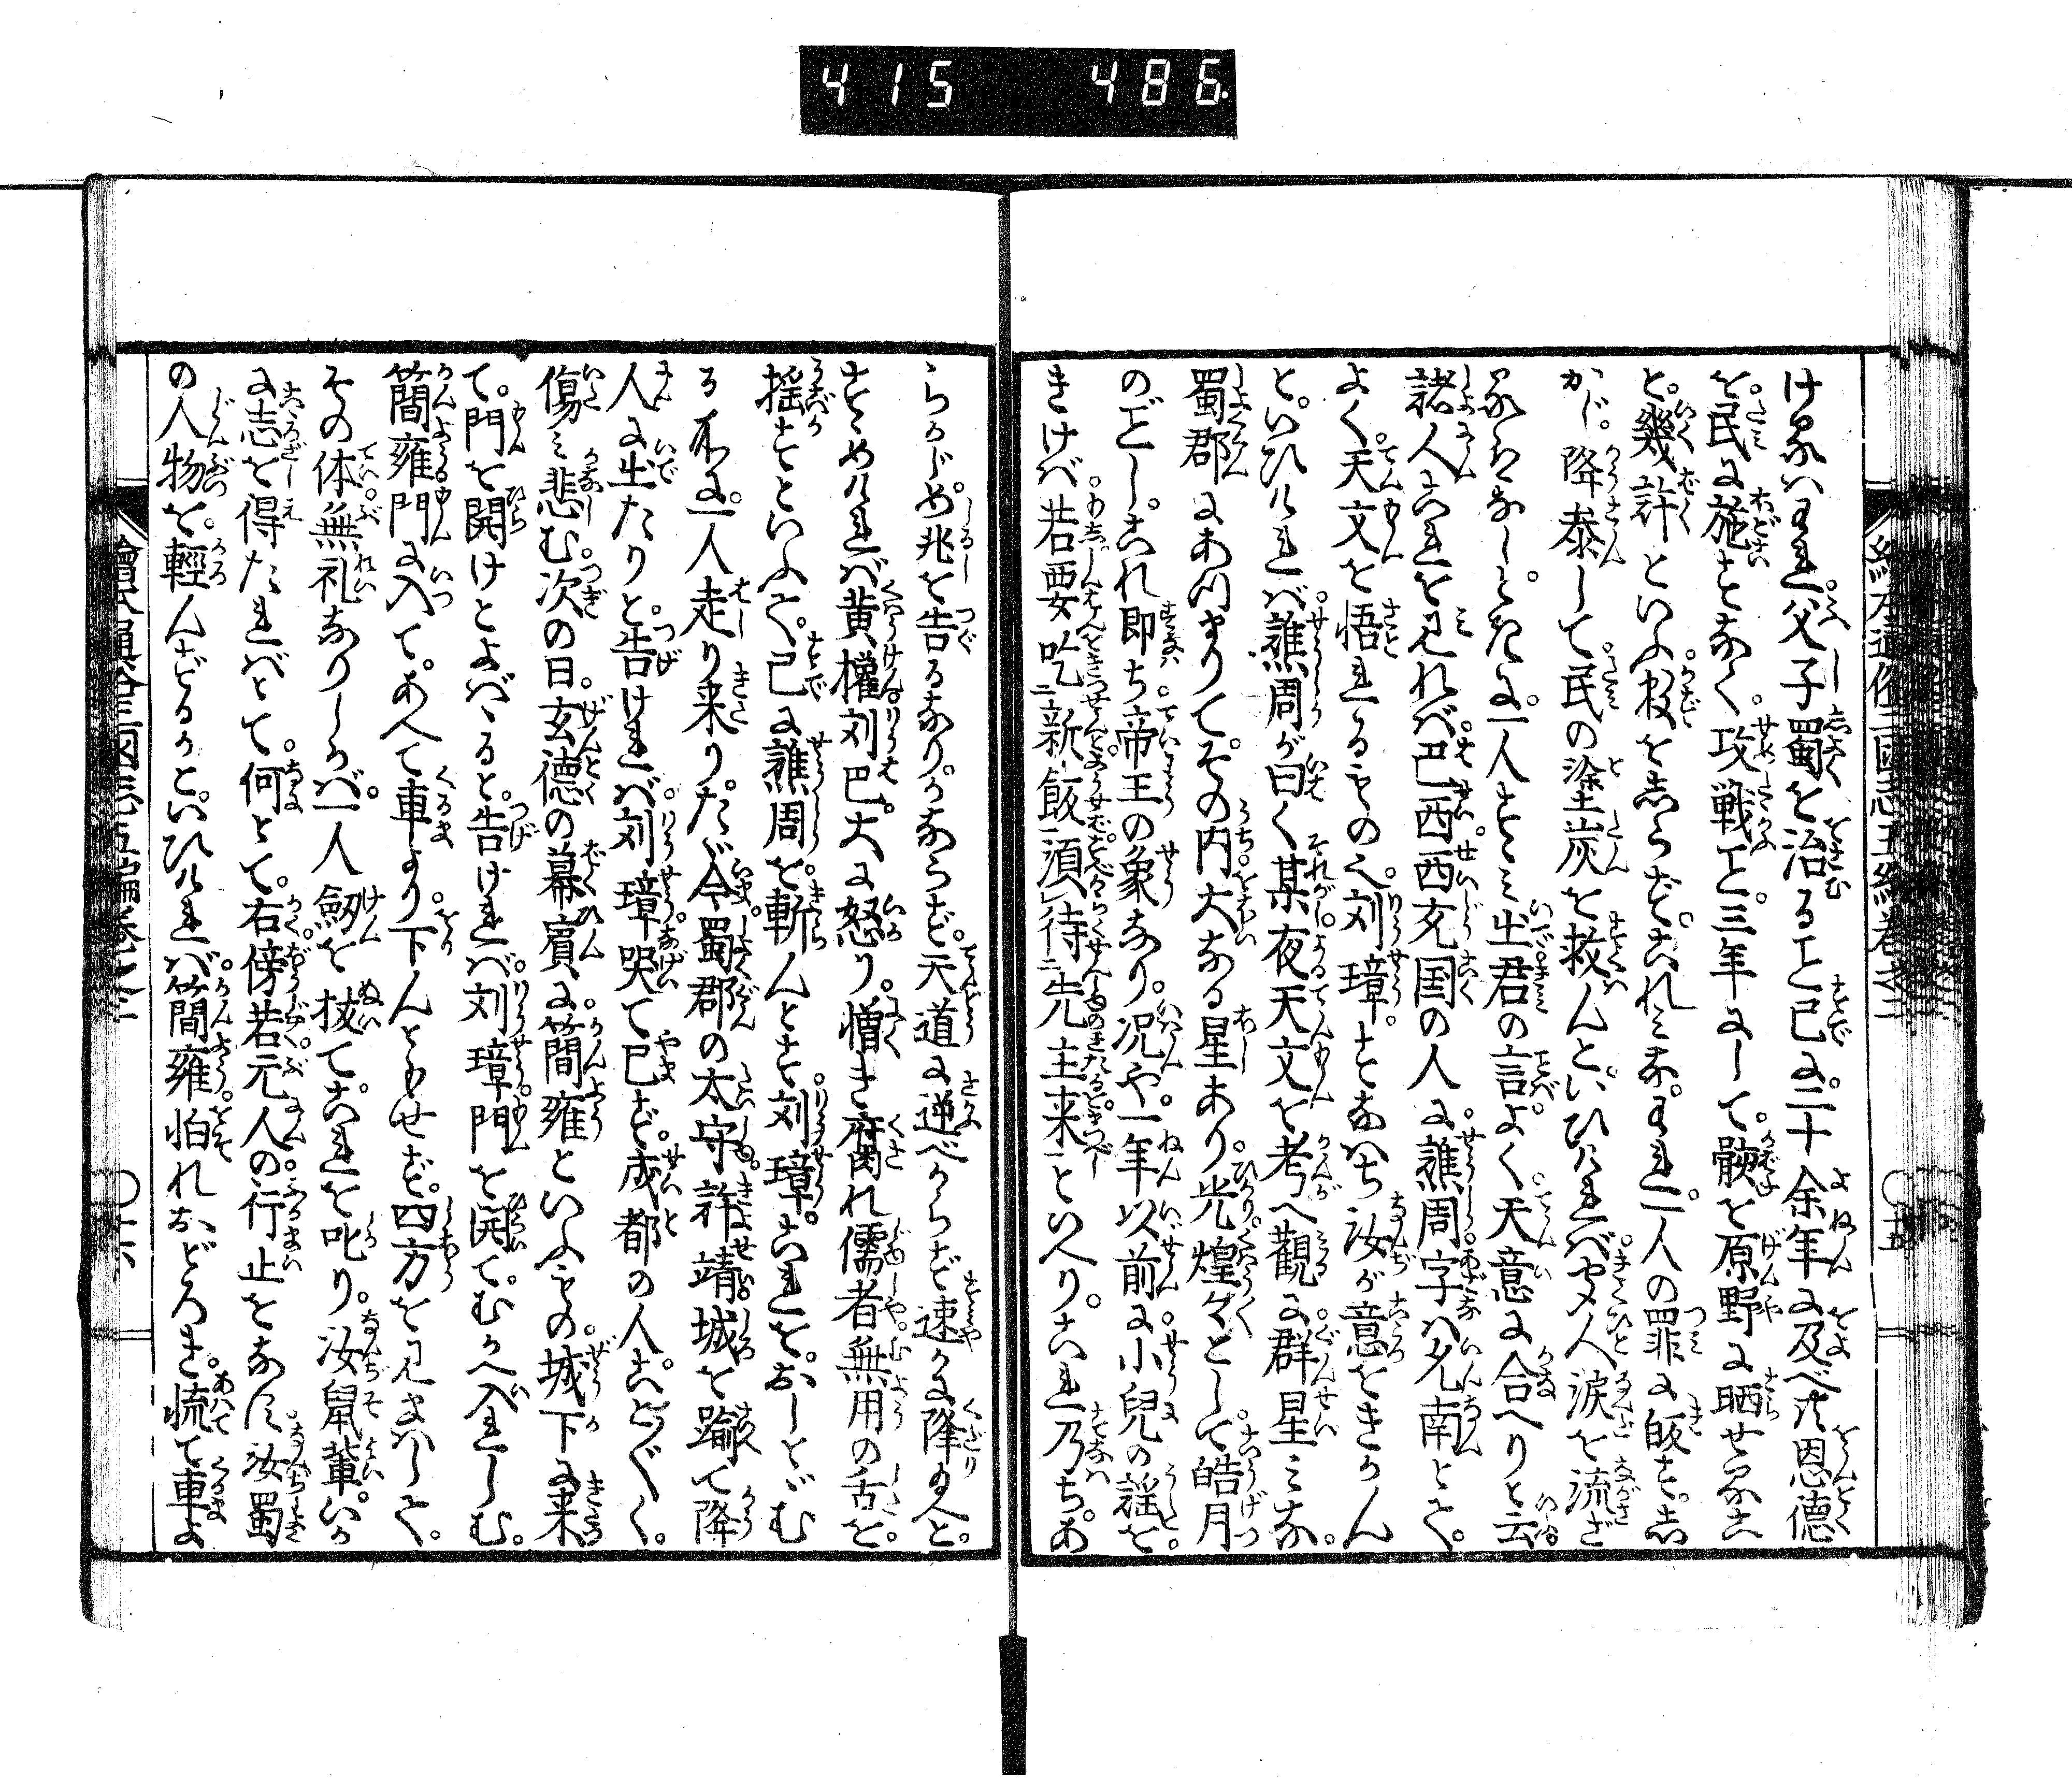 415 486
繪本通俗三國志五編卷之二
けるハわれ父子蜀を治ること已に三十余年に及べ共恩德
を民に施すことなく攻戦こと三年にして骸を原野に晒せること
と幾許といふ数をしらずこれみなわれ一人の罪に皈すし
かじ降参して民の塗炭を救んといひければ皆人涙を流ざ
るはなしときに一人すゝみ出君の言よく天意に合へりと云
諸人これを見れバ巴西西充国の人に譙周字ハ允南とて
よく天文を悟れるもの也刘璋すなハち汝が意をきかん
といひければ譙周が曰く某夜天文を考へ觀に群星みな
蜀郡にあつまりてその内大なる星あり光煌々として皓月
のごとしこれ即ち帝王の象なり况や一年以前に小兒の謡を
きけば若要吃新飯須待先主来といへりこれ乃ちあ
らかじめ兆を告るなりかならず天道に逆べからず速に降給へと
すゝめければ黄權刘巴大に怒り憎き腐れ儒者無用の舌を
揺すといふて已に譙周を斬んとす刘璋これをおしとゞむ
る所に一人走り来りたゞ今蜀郡の太守許靖城を踰て降
人に出たりと告ければ刘璋哭て已ず成都の人ことごとく
傷み悲む次の日玄德の幕賓に簡雍といふもの城下に来
て門を開けとよばゝると告ければ刘璋門を開てむかへ入しむ
簡雍門に入てあへて車より下んともせず四方を見まハして
その体無礼なりしかば一人劔を拔てこれを叱り汝鼠輩いか
に志を得たればとて何とて右傍若無人の行止をなすぞ汝蜀
の人物を輕んずるかといひければ簡雍怕れおどろき慌て車よ
繪本通俗三國志五編卷之二